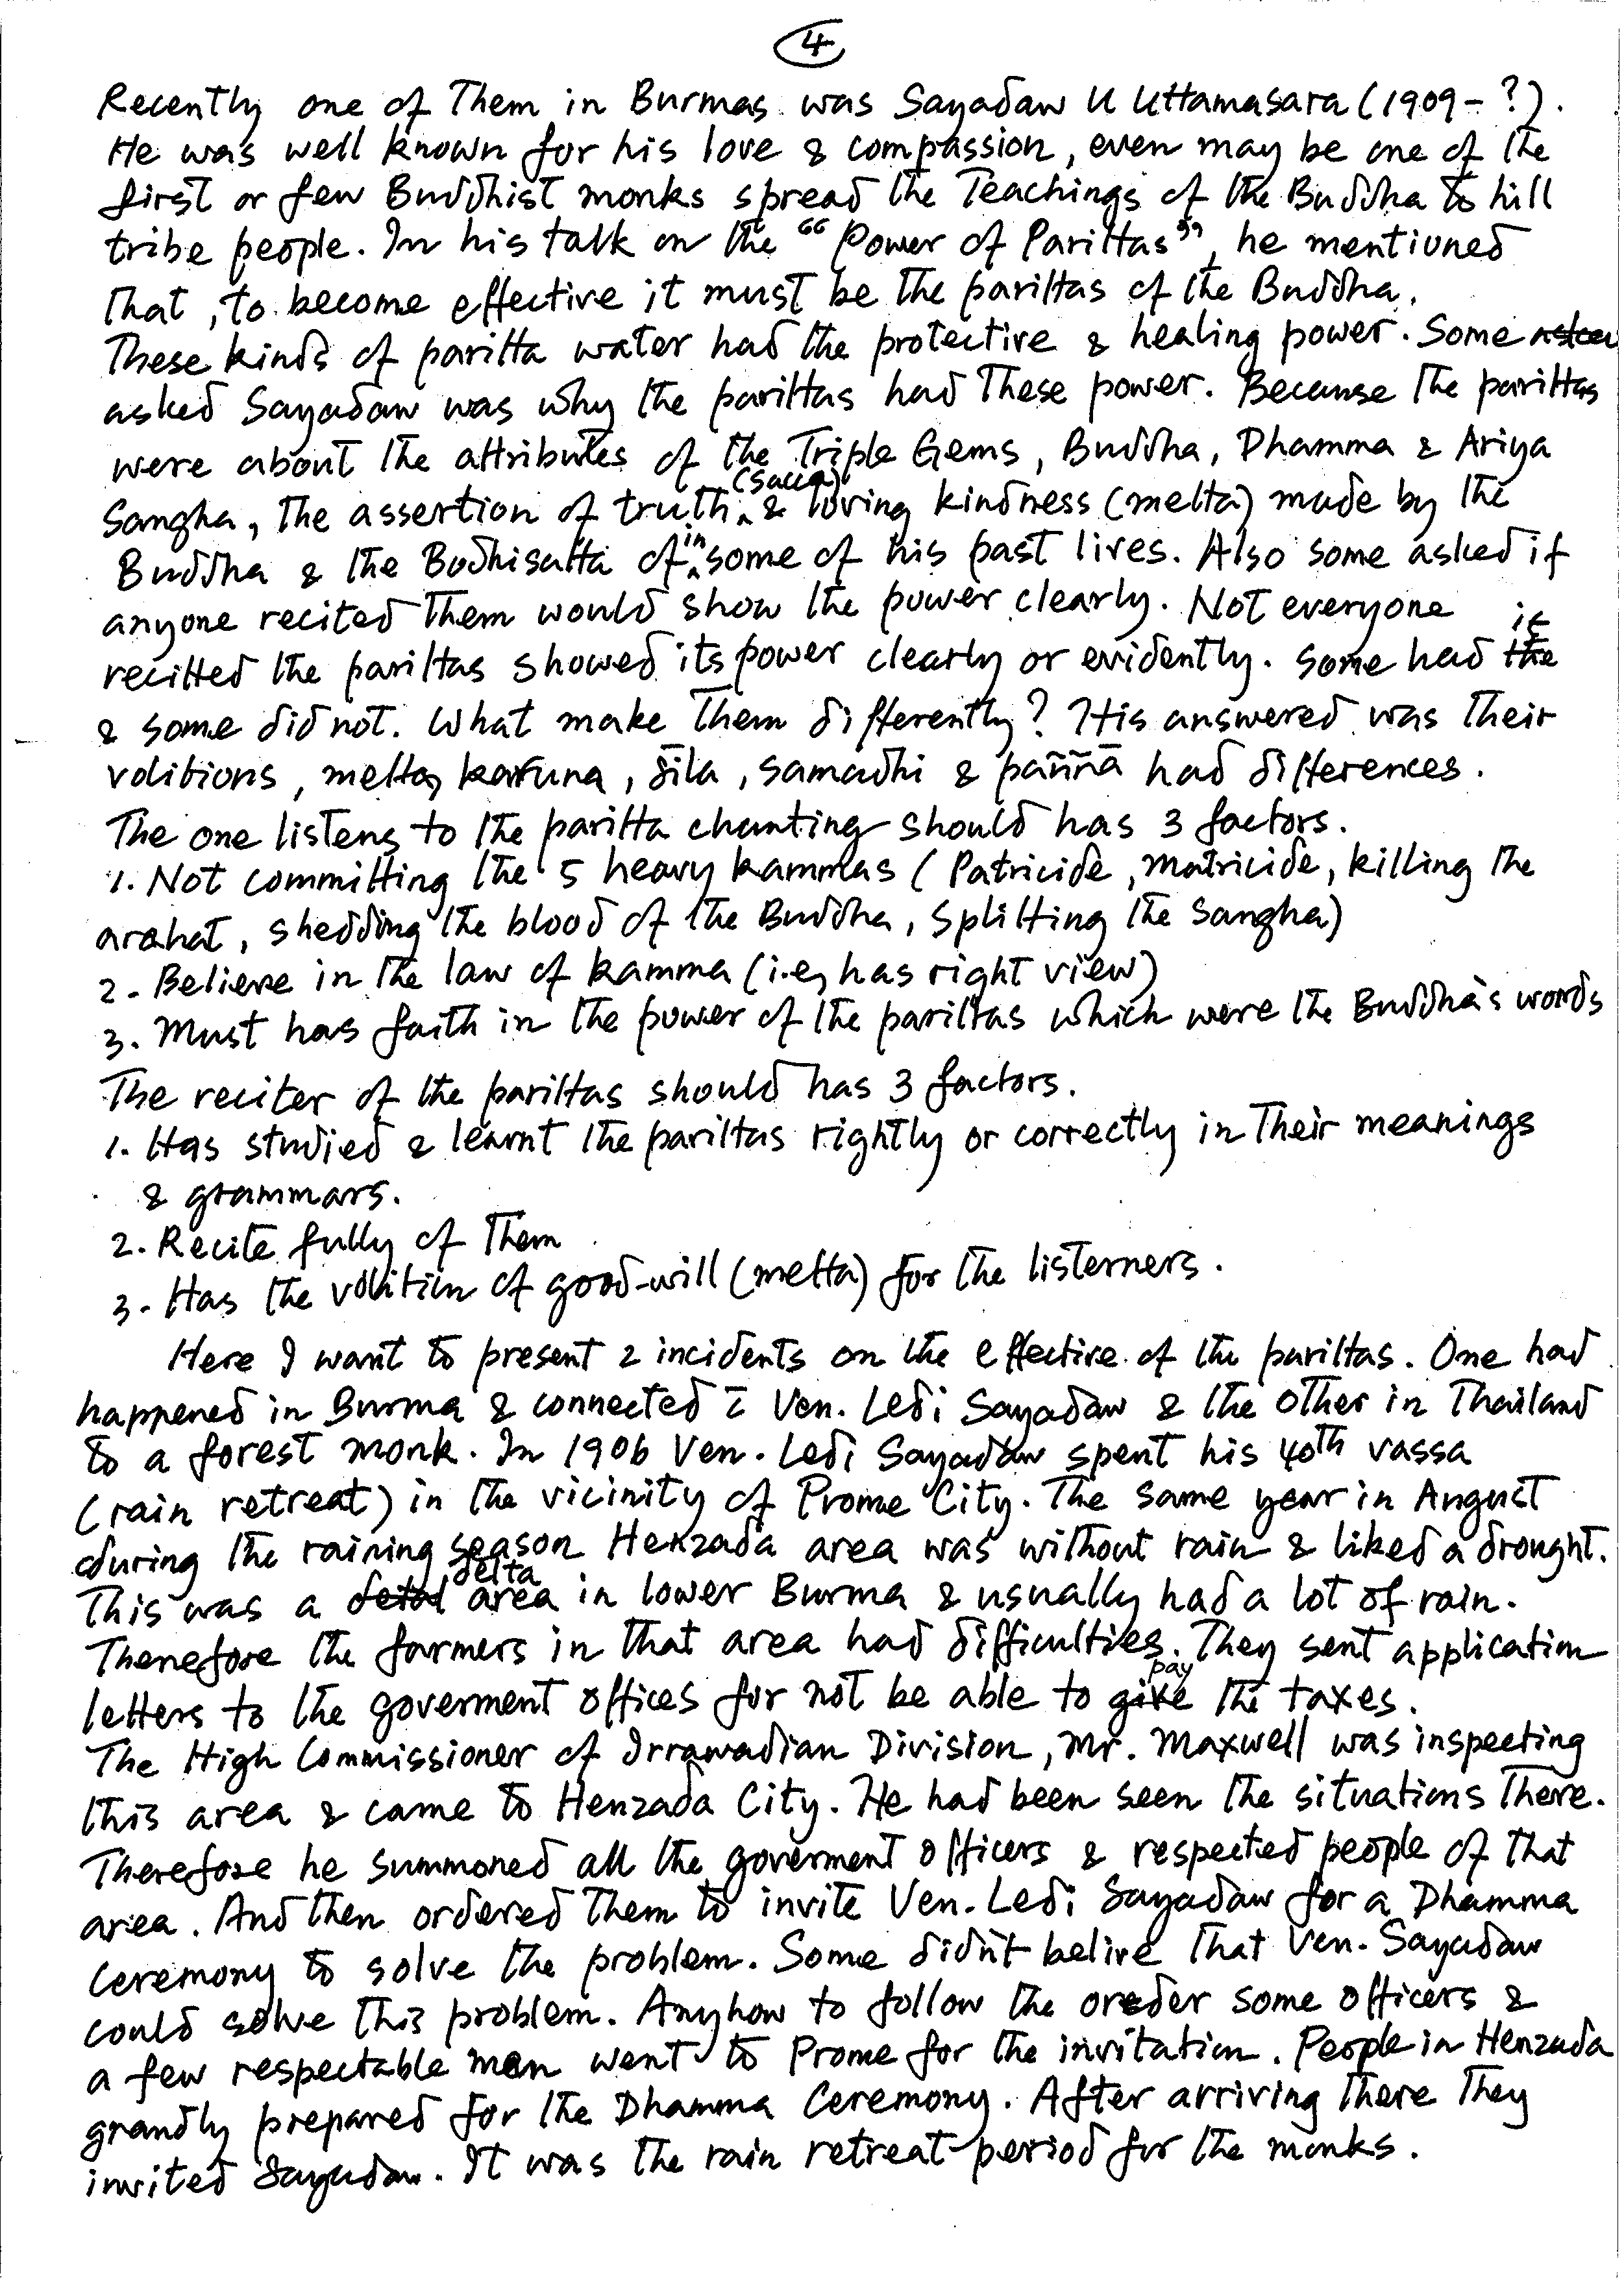 4
Recently one of Them in Burmas was Sayadaw U Uttamasara (1909 - ?).
He was well known for his love & compassion, even may be one of the
first or few Buddhist monks spread the Teachings of the Buddha to hill
tribe people. In his talk on the “Power of Parittas”, he mentioned
that, to become effective it must be the parittas of the Buddha.
These kinds of paritta water had the protective & healing power. Some
asked Sayadaw was why the parittas had these power. Because the parittas
were about the attributes of the Triple Gems, Buddha, Dhamma & Ariya
Sangha, the assertion of truth (sacca) & loving kindness (metta) made by the
Buddha & the Bodhisatta of in some of his past lives. Also some asked if
anyone recited them would show the power clearly. Not everyone
recitted the parittas showed its power clearly or evidently. Some had it
& some did not. What make them differently? His answered was their
volitions, metta, karuna, sīla, samadhi & paññā had differences.
The one listens to the paritta chanting should has 3 factors.
1. Not committing the 5 heavy kammas (Patricide, matricide, killing the
arahat, shedding the blood of the Buddha, splitting the Sangha)
2. Believe in the law of kamma (i.e, has right view)
3. Must has faith in the power of the parittas which were the Buddha's words
The reciter of the parittas should has 3 factors.
1. Has studied & learnt the parittas rightly or correctly in their meanings
& grammars.
2. Recite fully of them
3. Has the volition of good-will (metta) for the listerners.
Here I want to present 2 incidents on the effective of the parittas. One had
happened in Burma & connected c̄ Ven. Ledi Sayadaw & the other in Thailand
to a forest monk. In 1906 Ven. Ledi Sayadaw spent his 40th vassa
(rain retreat) in the vicinity of Prome City. The same year in August
during the raining season Henzada area was without rain & liked a drought.
This was a delta area in lower Burma & usually had a lot of rain.
Therefore the farmers in that area had difficulties. They sent application
letters to the goverment offices for not be able to pay the taxes.
The High Commissioner of Irrawadian Division, Mr. Maxwell was inspecting
this area & came to Henzada City. He had been seen the situations there.
Therefore he summoned all the goverment officers & respected people of that
area. And then ordered them to invite Ven. Ledi Sayadaw for a Dhamma
Ceremony to solve the problem. Some didn't belive that Ven. Sayadaw
could solve this problem. Anyhow to follow the order some officers &
a few respectable men went to Prome for the invitation. People in Henzada
grandly prepared for the Dhamma Ceremony. After arriving there they
invited Sayadaw. It was the rain retreat period for the monks.